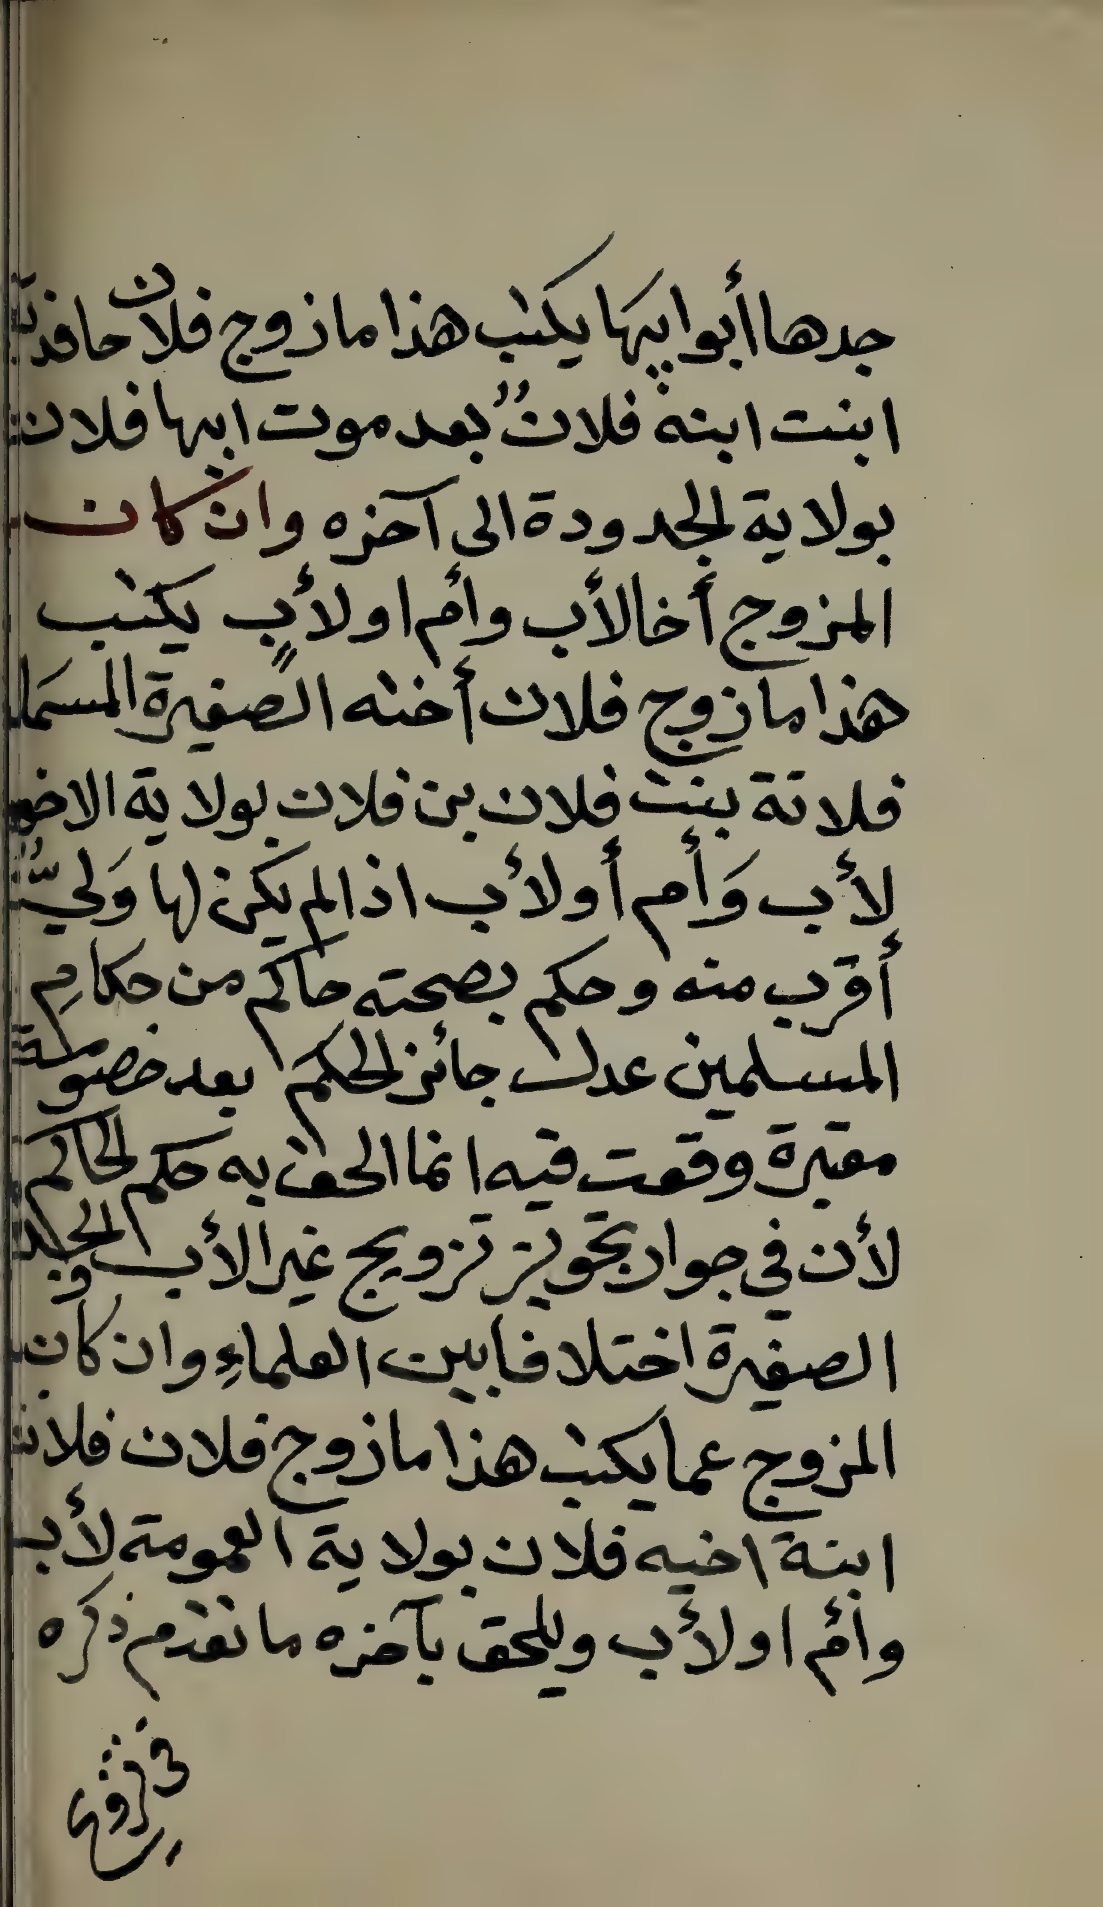 جدها أبوابيها يكتب هذا مازوج فلان حافدته
ابنت ابنه فلان بعد موت ابيها فلان
بولاية الجدودة الى آخره وان كان
المزوج أخالأب وأم اولأب يكتب
هذا مازوج فلان أخته الصغيرة المسماة
فلانة بنت فلان بن فلان بولاية الاخوة
لأب وَأم أولأب اذالم يكن لها وَليّ
أقرب منه وحكم بصحته حاكم من حكامِ
المسلمين عدل جائز الحكم بعد خصومة
معتبرة وقعت فيه انما الحق به حكم الحاكم
لأن في جواز تجويز تزويج غير الأب والجد
الصغيرة اختلافا بين العلماءِ وان كان
المزوج عما يكتب هذا مازوج فلان فلانة
ابنة اخيه فلان بولاية العمومة لأب
وأم اولأب ويلحق بآخره ما تقدم ذكره
في تزويج